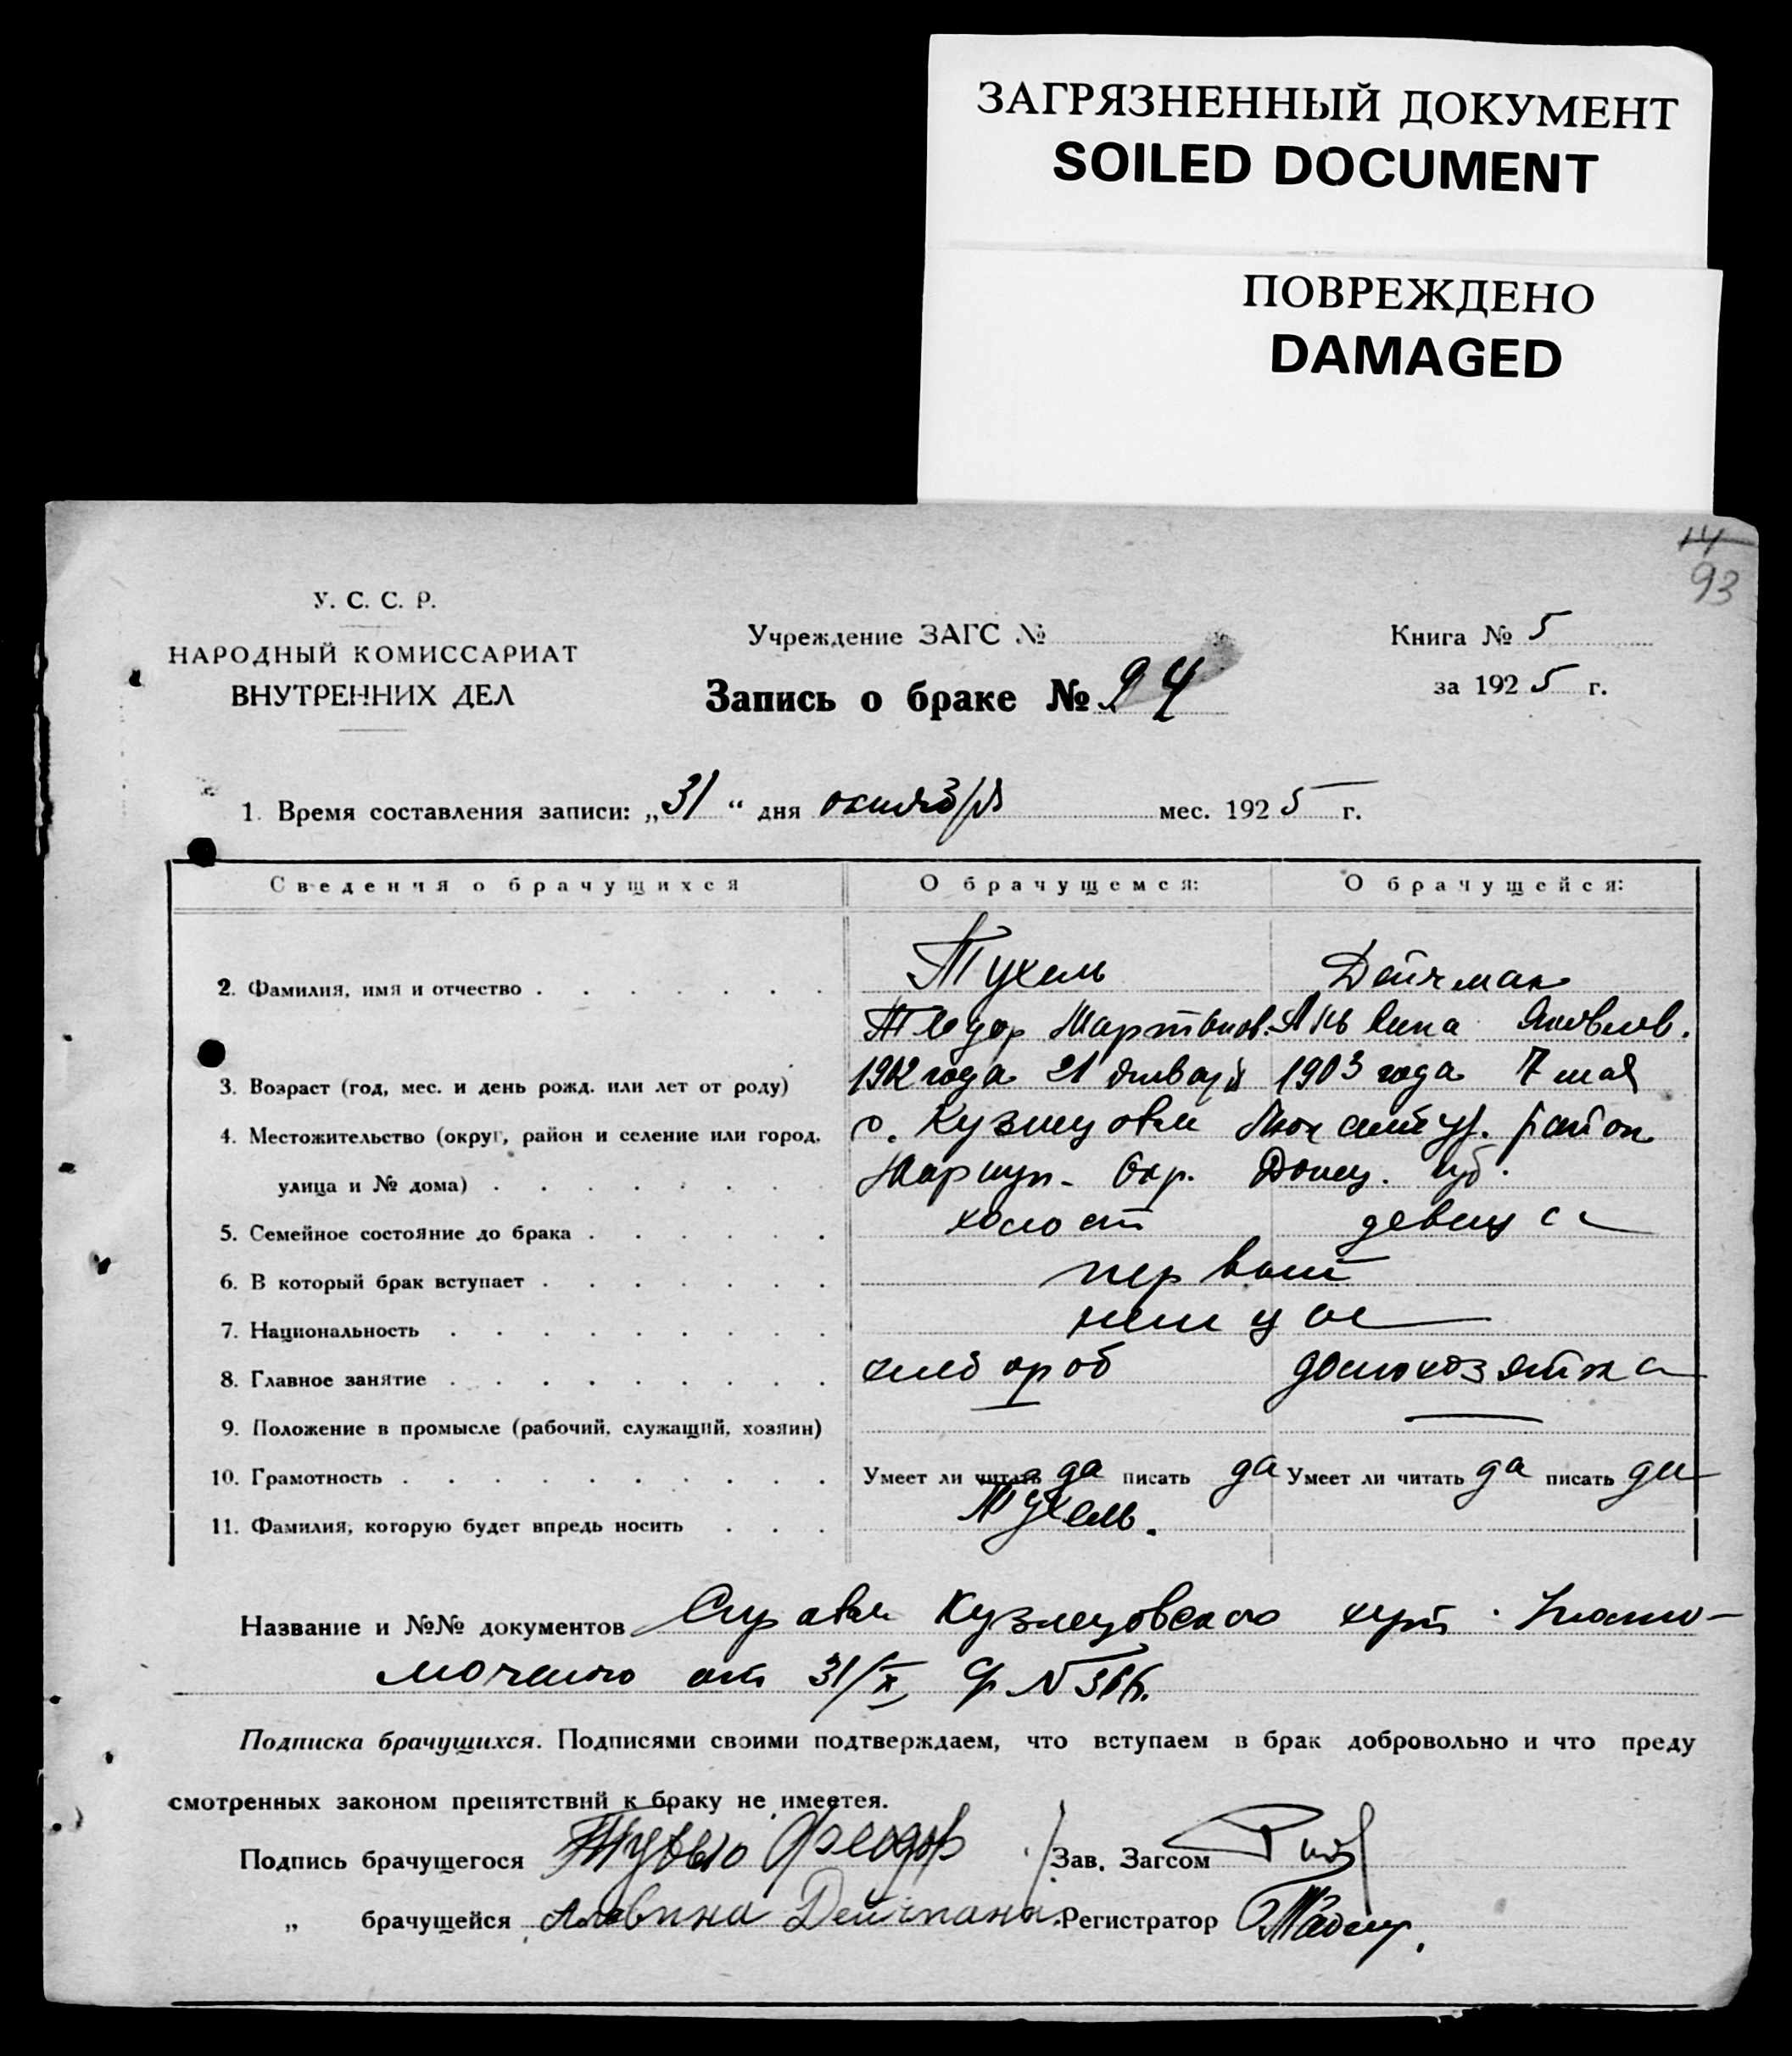 ЗАГРЯЗНЕННЫЙ ДОКУМЕНТ
SOILED DOCUMENT
ПОВРЕЖДЕНО
DAMAGED
14
93
У. С. С. Р.
НАРОДНЫЙ КОМИССАРИАТ
ВНУТРЕННИХ ДЕЛ
Учреждение ЗАГС №
Запись о браке № 24
Книга № 5
за 1925 г.
1. Время составления записи: „31“ дня октября мес. 1925 г.
Сведения о брачущихся О брачущемся: О брачущейся:
2. Фамилия, имя и отчество Тухель Дейчман
Теодор Мартынов. Яковлев.
3. Возраст (год, мес. и день рожд. или лет от роду) 1902 года 21 января 1903 года 7 мая
4. Местожительство (округ, район и селение или город, с. Кузнецовка район
улица и № дома) Мариуп. Окр. Донец. губ.
5. Семейное состояние до брака холост девица
6. В который брак вступает первый
7. Национальность немцы
8. Главное занятие хлебороб домохозяйка
9. Положение в промысле (рабочий, служащий, хозяин)
10. Грамотность Умеет ли читать да писать да Умеет ли читать да писать да
11. Фамилия, которую будет впредь носить Тухель.
Название и №№ документов Справка Кузнецовского хут. Уполно-
моченого от 31/X
Подписка брачущихся. Подписями своими подтверждаем, что вступаем в брак добровольно и что преду
смотренных законом препятствий к браку не имеется.
Подпись брачущегося Феодор Зав. Загсом
„ брачущейся Альвина Дейчман Регистратор